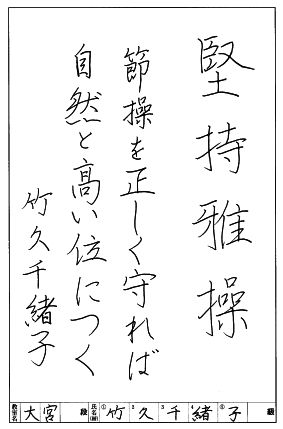 堅持雅操
節操を正しく守れば
自然と高い位につく
竹久千緒子
教室名 大宮 段 氏名(号) ①竹 ②久 ③千 ④緒 ⑤子 級